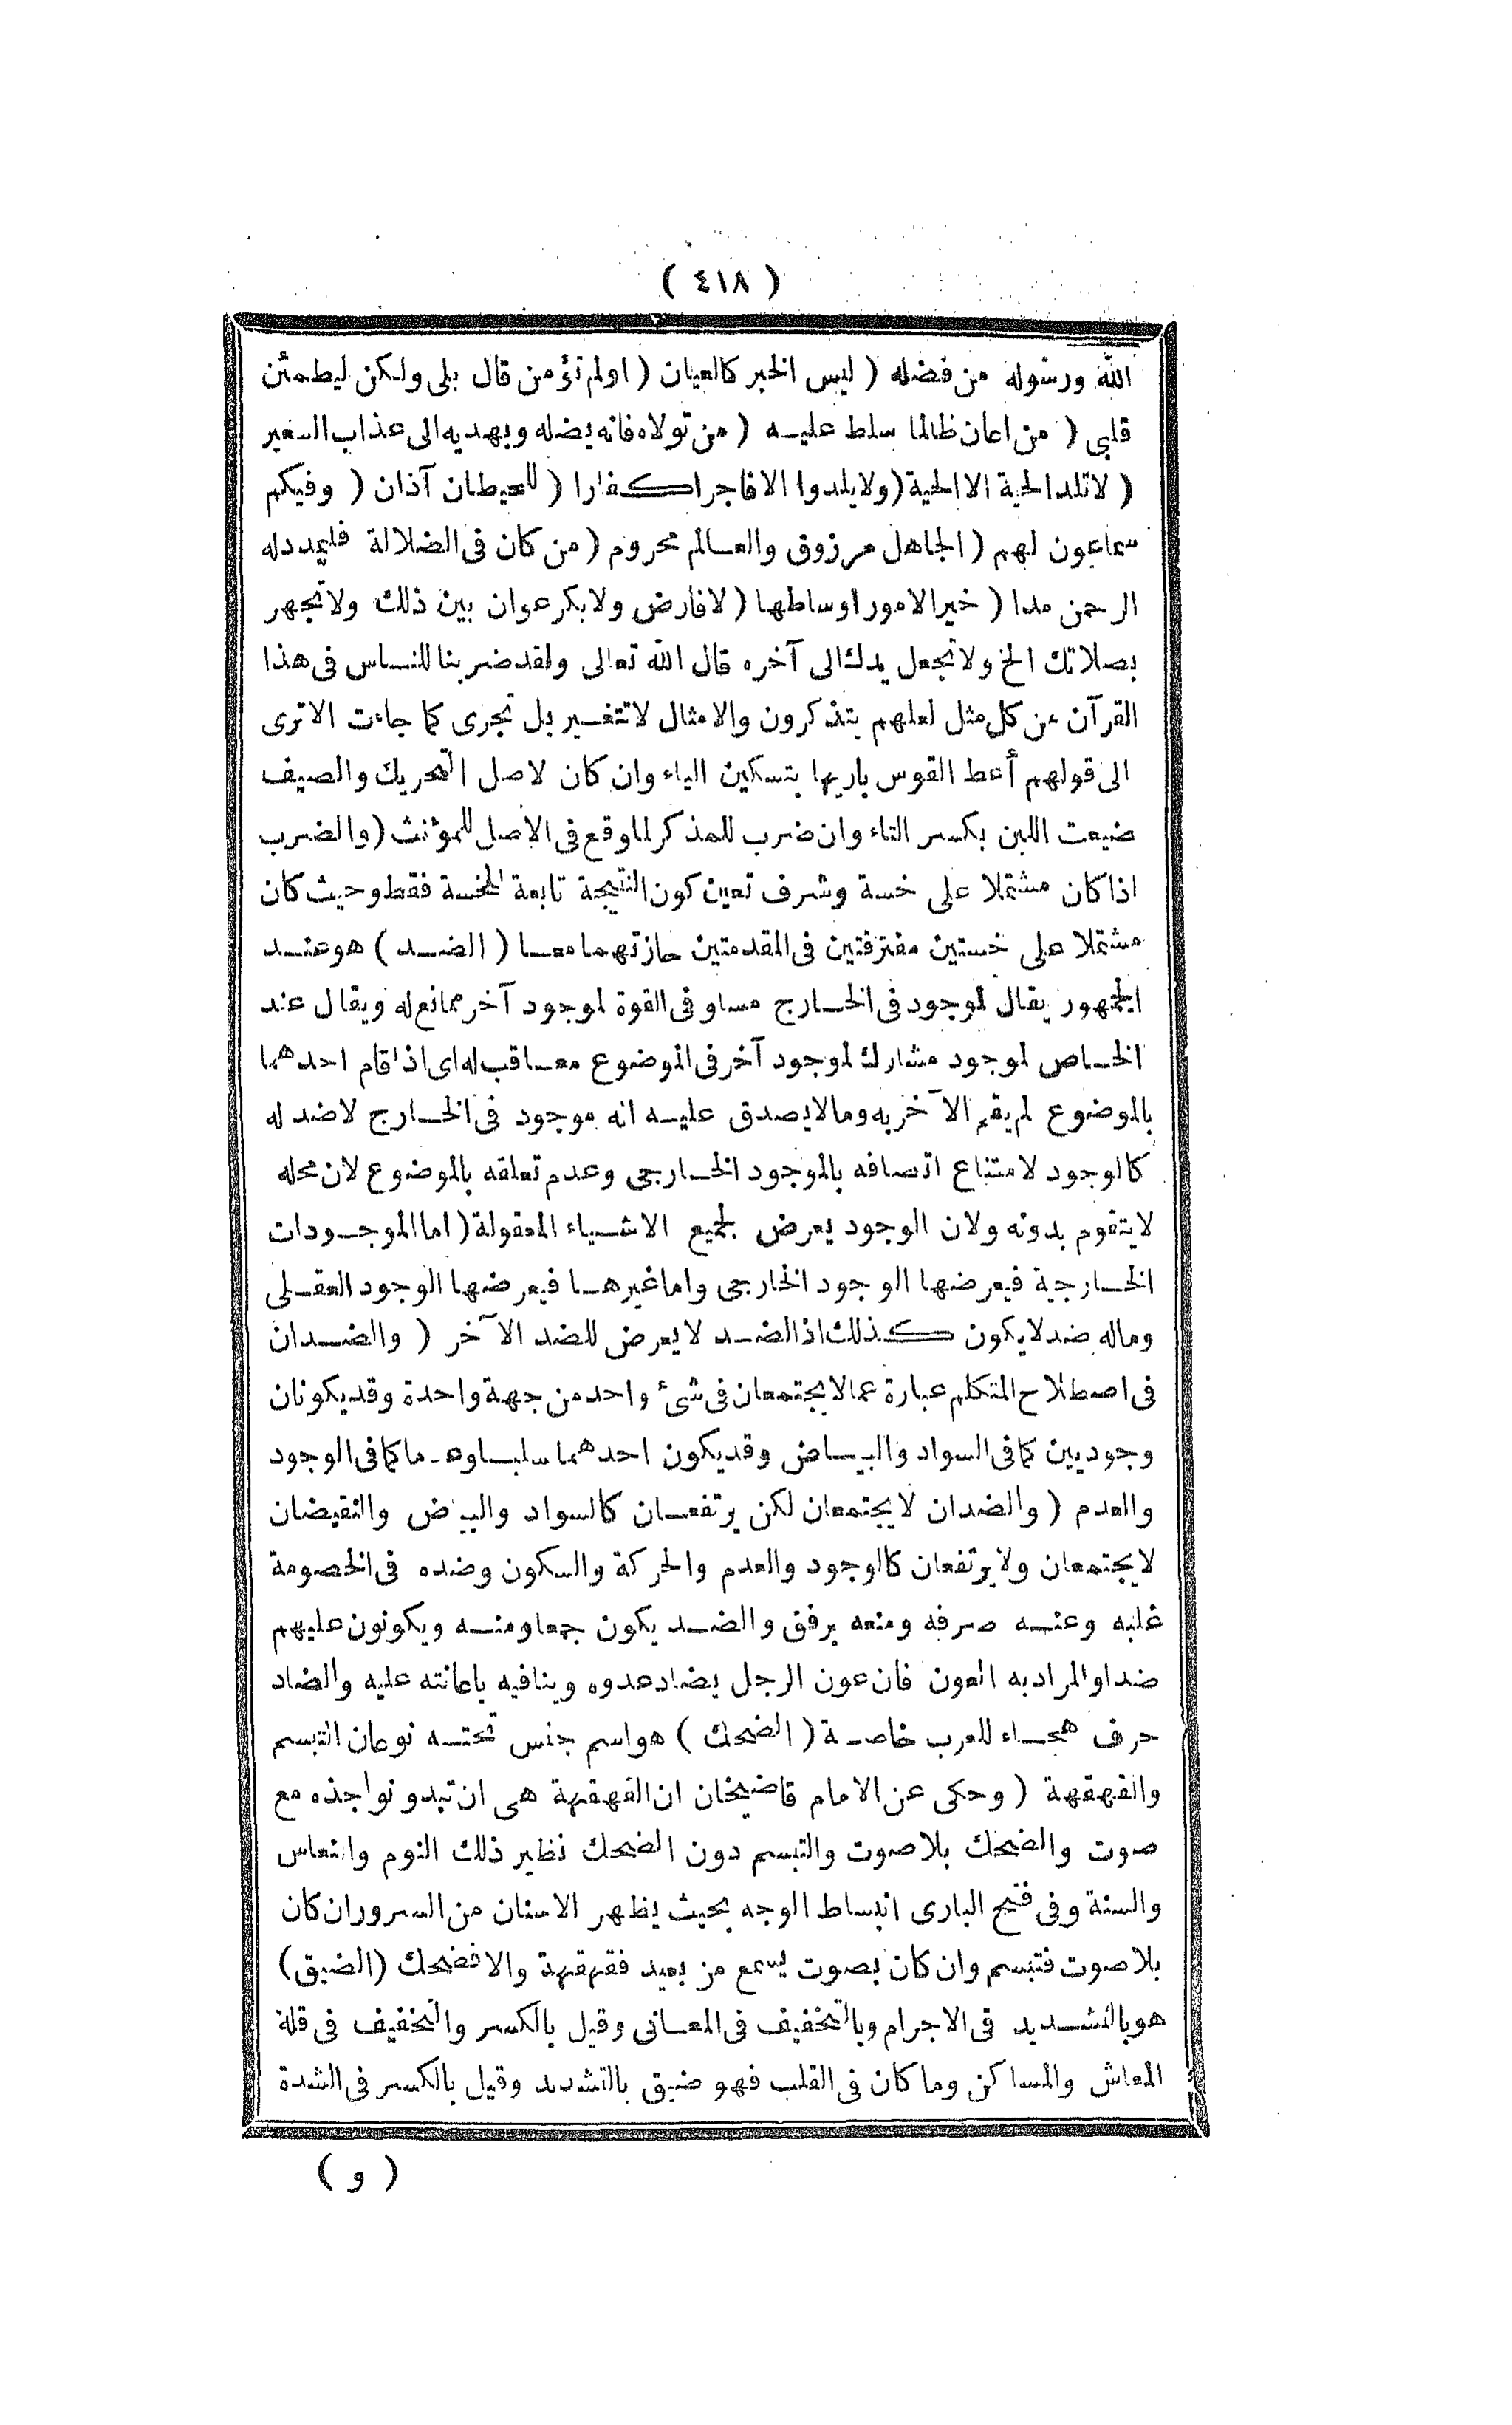 ( ٤١٨ )
الله ورسوله من فضله ( ليس الخبر كالعيان ( اولم تؤمن قال بلى ولكن ليطمئن
قلبى ( من اعان ظالما سلط عليه ( من تولاه فانه يضله ويهديه الى عذاب السعير
( لا تلد الحية الا الحية ( ولا يلدوا الا فاجرا كفارا ( للحيطان آذان ( وفيكم
سماعون لهم ( الجاهل مرزوق والعالم محروم ( من كان فى الضلالة فليمدد له
الرحمن مدا ( خير الامور اوساطها ( لا فارض ولا بكر عوان بين ذلك ولا تجهر
بصلاتك الخ ولا تجعل يدك الى آخره قال الله تعالى ولقد ضربنا للناس فى هذا
القرآن من كل مثل لعلهم يتذكرون والامثال لا تتغير بل تجرى كما جاءت الا ترى
الى قولهم أعط القوس باريها بتسكين الياء وان كان لاصل التحريك والصيف
ضيعت اللبن بكسر التاء وان ضرب للمذكر لما وقع فى الاصل للمؤنث ( والضرب
اذا كان مشتملا على خسة وشرف تعين كون النتيجة تابعة للخسة فقط وحيث كان
مشتملا على خستين مفترقتين فى المقدمتين حازتهما معا ( الضد ) هو عند
الجمهور يقال لموجود فى الخارج مساو فى القوة لموجود آخر ممانع له ويقال عند
الخاص لموجود مشارك لموجود آخر فى الموضوع معاقب له اى اذا قام احدهما
بالموضوع لم يقم الآخر به وما لا يصدق عليه انه موجود فى الخارج لا ضد له
كالوجود لامتناع اتصافه بالموجود الخارجى وعدم تعلقه بالموضوع لان محله
لا يتقوم بدونه ولان الوجود يعرض لجميع الاشياء المعقولة ( اما الموجودات
الخارجية فيعرضها الوجود الخارجى واما غيرها فيعرضها الوجود العقلى
وماله ضد لا يكون كذلك اذ الضد لا يعرض للضد الآخر ( والضدان
فى اصطلاح المتكلم عبارة عما لا يجتمعان فى شئ واحد من جهة واحدة وقد يكونان
وجوديين كما فى السواد والبياض وقد يكون احدهما سلبا وعدما كما فى الوجود
والعدم ( والضدان لا يجتمعان لكن يرتفعان كالسواد والبياض والنقيضان
لا يجتمعان ولا يرتفعان كالوجود والعدم والحركة والسكون وضده فى الخصومة
غلبه وعنه صرفه ومنعه برفق والضد يكون جمعا ومنه ويكونون عليهم
ضدا والمراد به العون فان عون الرجل يضاد عدوه وينافيه باعانته عليه والضاد
حرف هجاء للعرب خاصة ( الضحك ) هو اسم جنس تحته نوعان التبسم
والقهقهة ( وحكى عن الامام قاضيخان ان القهقهة هى ان تبدو نواجذه مع
صوت والضحك بلا صوت والتبسم دون الضحك نظير ذلك النوم والنعاس
والسنة وفى فتح البارى انبساط الوجه بحيث يظهر الاسنان من السرور ان كان
بلا صوت فتبسم وان كان بصوت يسمع من بعيد فقهقهة والا فضحك ( الضيق )
هو بالتشديد فى الاجرام وبالتخفيف فى المعانى وقيل بالكسر والتخفيف فى قلة
المعاش والمساكن وما كان فى القلب فهو ضيق بالتشديد وقيل بالكسر فى الشدة
( و )